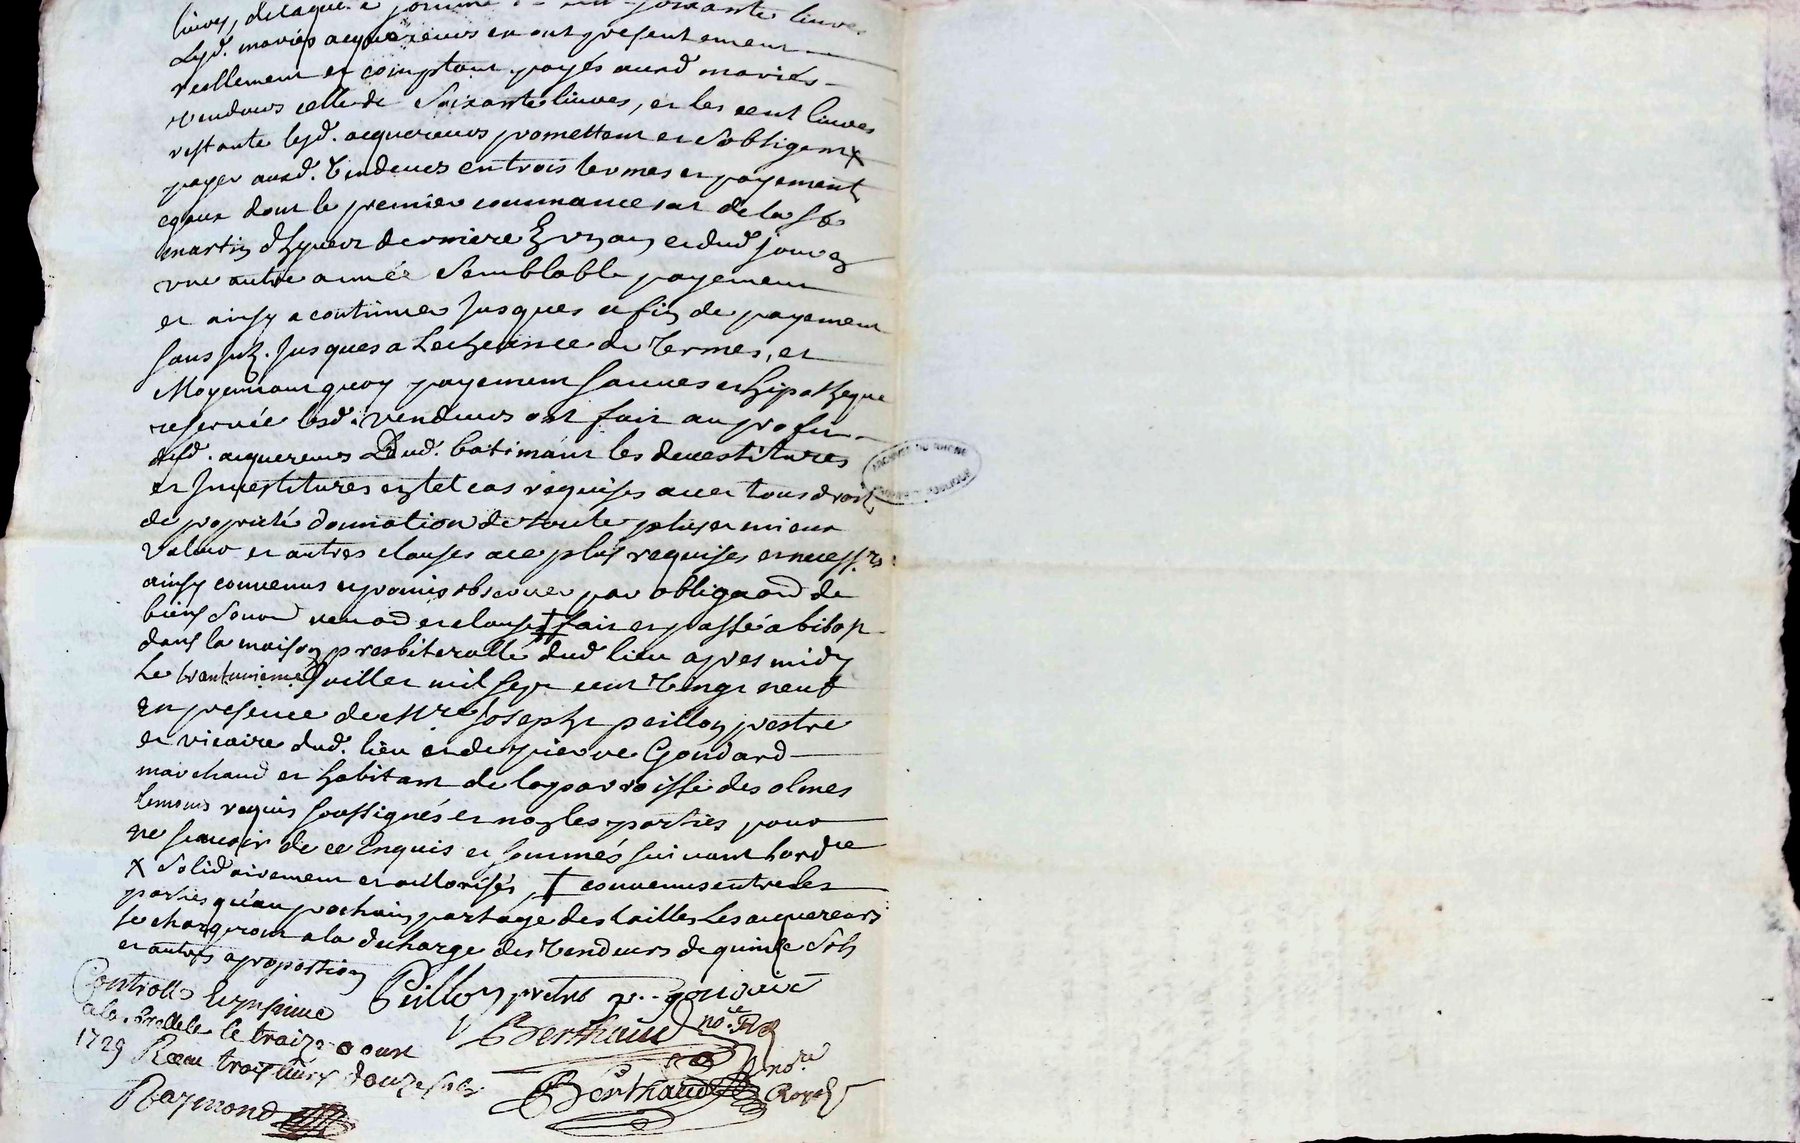 livres, de laquelle somme de cent soixante livres
Lesd. mariés acquereurs en ont presentement
reellement et comptant payés auxd mariés
vendeurs celle de soixante livres, et les cent livres
restante lesd. acquereurs promettent et sobligent X
payer auxd. Vendeurs en trois termes et payements
egaux dont le premier commancera de la St
martin dhyver derniere en un an et dud jour en
une autre année semblable payement
et ainsy a continuer jusques a fin de payement
sans jusques a Lecheance de termes, et
Moyennant quoy payement sauves et hipotheque
reservée lesd. vendeurs ont fait au profit
desd. acquereurs Dud. batimant les devestitures
et Investitures en tel cas requises avec tous droits
de propriété donnation de toute plus et mieux
valuë et autres clauses a ce plus requises et necessres
ainsy convenus et promis observer par obligaon de
biens renon et clauses ‡ fait et passé a bibost
dans la maison presbiteralle dud lieu apres midy
Le trantunieme Juillet mil sept cent Vingt neuf
En presence de Mre Joseph peillon prestre
et vicaire dud. lieu et de pierre Goudard
marchand et habitant de la parroisse des olmes
temoins requis soussignés et non les parties pour
ne scavoir de ce Enquis et sommés suivant lordce
X solidairement et autorisés, ‡ convenus entre les
parties qu'au prochain partage des tailles Les acquereurs
se chargeront a la decharge des Vendeurs de quinze sols
et autres a proportion
Peillon prètre p. goudard
Controllé
a la Brelle le traize aoust
1729 Receu trois livres douze sols
Berthaud nore Rl
Berthaud nore Royal
Raymond
ARCHIVES DU RHONE